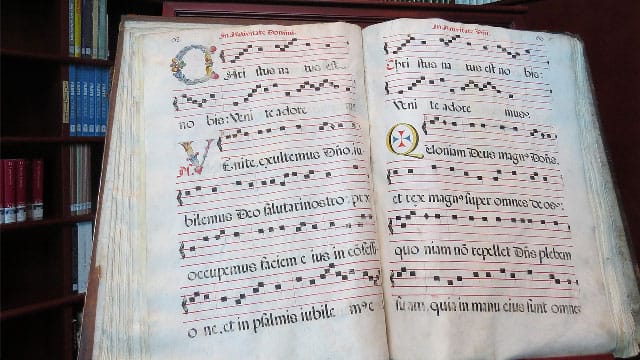 In Nativitate Domini.
Chri stus na tus est
no bis: Veni te adore
Venite, exultemus Dño, iu
bilemus Deo salutari nostro: præ
occupemus faciem e ius in cōfessi
o ne, et in psalmis iubile m9 e
In Nativitate Dñi.
Chri stus na tus est no bis:
Veni te adore mus.
Quoniam Deus magn9 Dōns,
et rex magn9 super omnes deos:
quo niam nō repellet Dñs plebem
suam, quia in manu eius sunt omnes